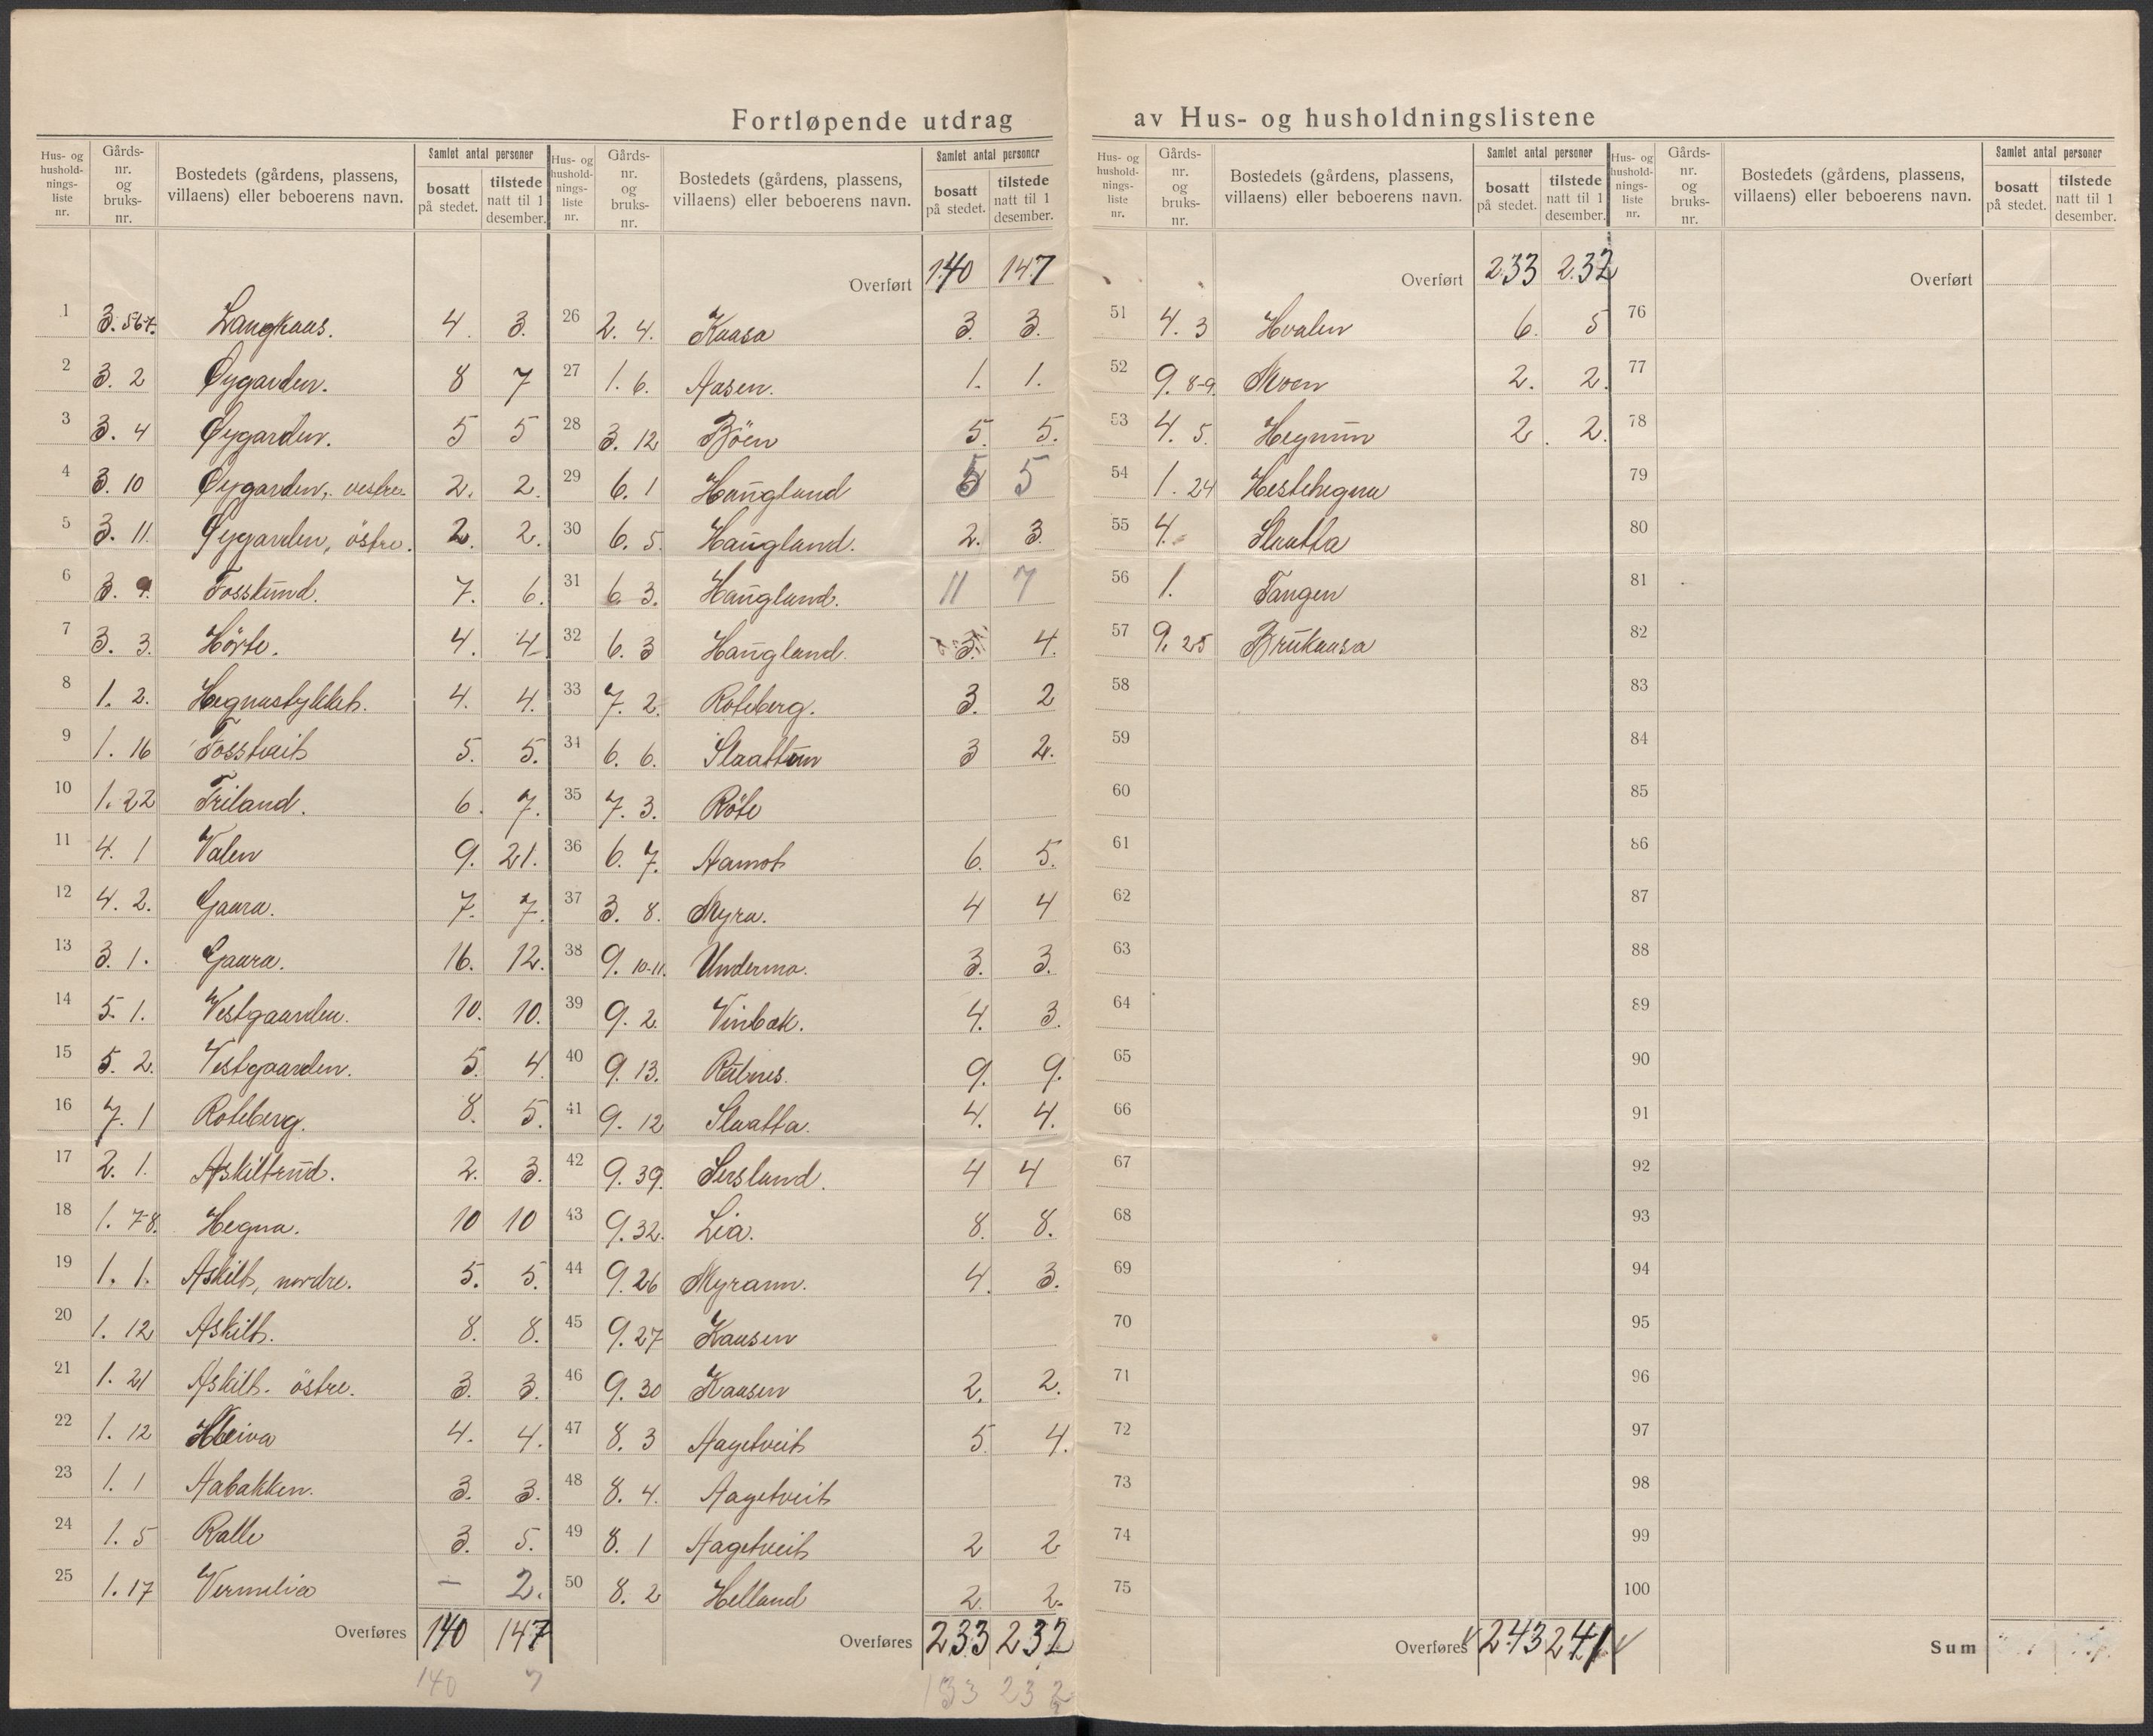 Fortløpende utdrag av Hus- og husholdningslistene
Hus- og hushold-nings-liste nr. | Gårds-nr. og bruks-nr. | Bostedets (gårdens, plassens, villaens) eller beboerens navn. | Samlet antal personer | bosatt på stedet. | tilstede natt til 1 desember.
1 3. 567. Langkaas. 4. 3.
2 3. 2 Øygarden. 8 7
3 3. 4 Øygarden. 5 5
4 3. 10 Øygarden, vestre. 2. 2.
5 3. 11. Øygarden, östre. 2. 2.
6 3. 9. Fosslund. 7. 6.
7 3. 3. Hörte. 4. 4
8 1. 2. Hegnastykket. 4. 4.
9 1. 16 Fosstveit 5. 5.
10 1. 22 Friland. 6. 7.
11 4. 1 Valen 9. 21.
12 4. 2. Gaara. 7. 7.
13 3. 1. Gaara. 16. 12.
14 5. 1. Vestgaarden. 10. 10.
15 5. 2. Vestgaarden. 5. 4.
16 7. 1 Roteberg. 8. 5.
17 2. 1. Askiltrud. 2. 3.
18 1. 78. Hegna. 10 10
19 1. 1. Askilt, nordre. 5. 5.
20 1. 12 Askilt. 8. 8.
21 1. 21 Askilt. östre. 3. 3.
22 1. 12 Heiva 4. 4.
23 1. 1 Aabakken. 3. 3.
24 1. 5 Ralle 3. 5.
25 1. 17 Vermelia — 2.
Overføres 140 147
140 7
Hus- og hushold-nings-liste nr. | Gårds-nr. og bruks-nr. | Bostedets (gårdens, plassens, villaens) eller beboerens navn. | Samlet antal personer | bosatt på stedet. | tilstede natt til 1 desember.
Overført 140 147
26 2. 4. Kaasa 3. 3.
27 1. 6. Aasen. 1. 1.
28 3. 12 Böen 5. 5.
29 6. 1 Haugland 5 5
30 6. 5. Haugland. 2. 3.
31 6. 3. Haugland. 11 7
32 6. 3 Haugland. 3. 4.
33 7. 2. Roteberg. 3. 2
34 6. 6. Slaattun 3 2.
35 7. 3. Röte
36 6. 7. Aamot 6. 5.
37 3. 8. Myra. 4 4
38 9. 10-11. Underma. 3. 3.
39 9. 2. Vinbæk. 4. 3.
40 9. 13. 9. 9.
41 9. 12 Slaatta. 4. 4.
42 9. 39. 4 4
43 9. 32. Lia. 8. 8.
44 9. 26 Myrann. 4. 3.
45 9. 27 Kaasen
46 9. 30 Kaasen 2. 2.
47 8. 3 Aagetveit 5. 4.
48 8. 4. Aagetveit
49 8. 1 Aagetveit 2 2
50 8. 2 Helland 2. 2.
Overføres 233 232
133 232
Hus- og hushold-nings-liste nr. | Gårds-nr. og bruks-nr. | Bostedets (gårdens, plassens, villaens) eller beboerens navn. | Samlet antal personer | bosatt på stedet. | tilstede natt til 1 desember.
Overført 233 232
51 4. 3 Hvalen 6. 5
52 9. 8-9. Moen 2. 2.
53 4. 5. Hegnun 2. 2.
54 1. 24 Hestehegna
55 4. Slaatta
56 1. Tangen
57 9. 25 Brukaasa
58
59
60
61
62
63
64
65
66
67
68
69
70
71
72
73
74
75
Overføres 243 241
Hus- og hushold-nings-liste nr. | Gårds-nr. og bruks-nr. | Bostedets (gårdens, plassens, villaens) eller beboerens navn. | Samlet antal personer | bosatt på stedet. | tilstede natt til 1 desember.
Overført
76
77
78
79
80
81
82
83
84
85
86
87
88
89
90
91
92
93
94
95
96
97
98
99
100
Sum